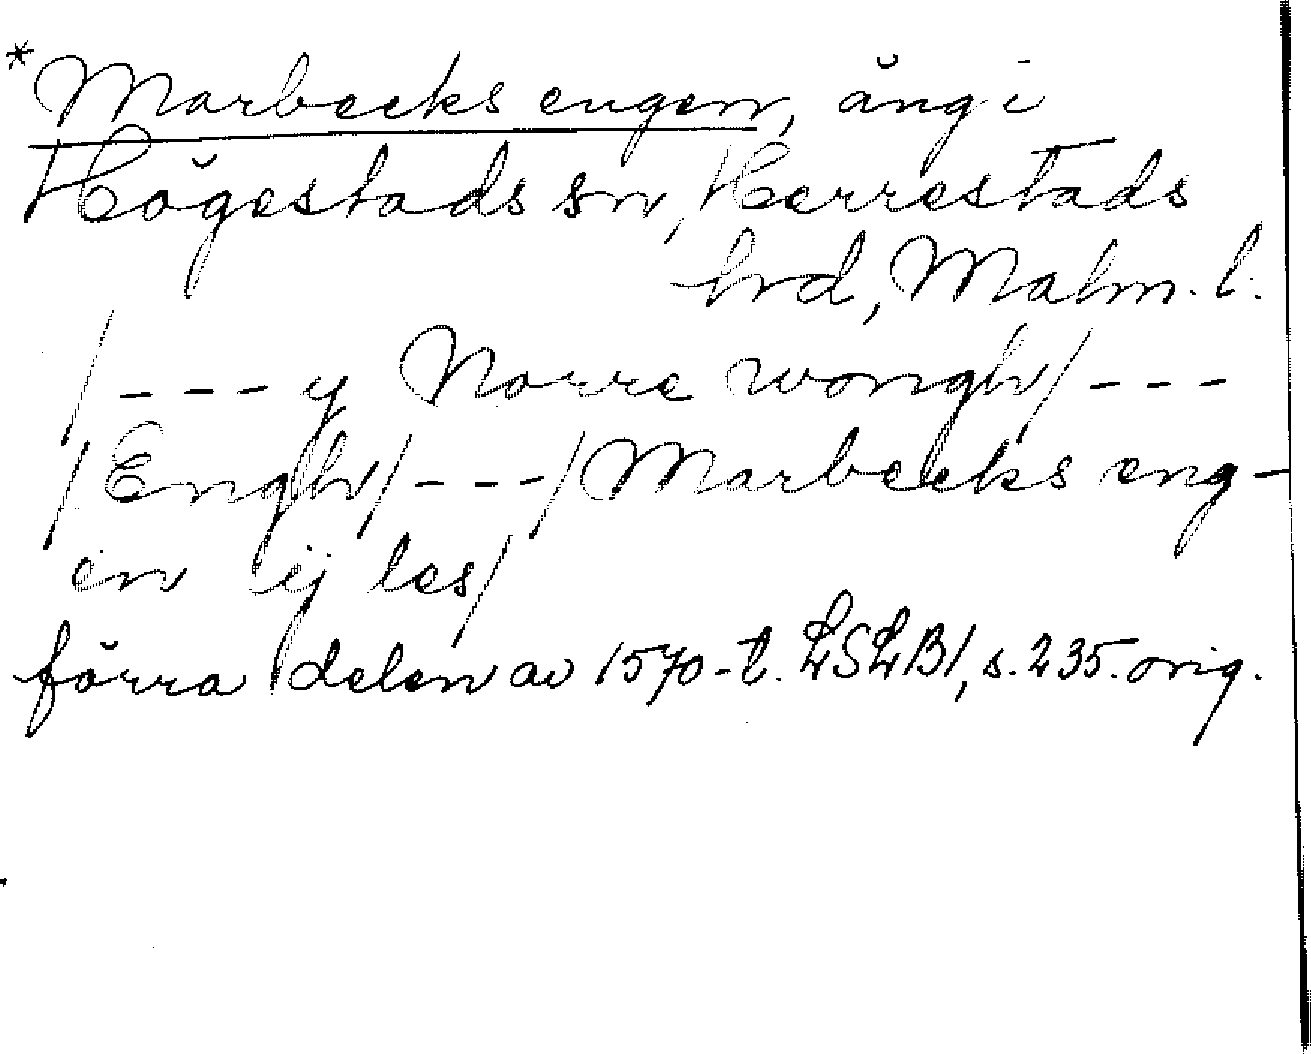 *Marbecks engen, äng i
Högestads sn, Herrestads
hrd, Malm. l.
/---y Norre wongh/---
/Engh/---/Marbecks eng-
en ij les/
förra delen av 1570-t. LSLB1, s. 235. orig.